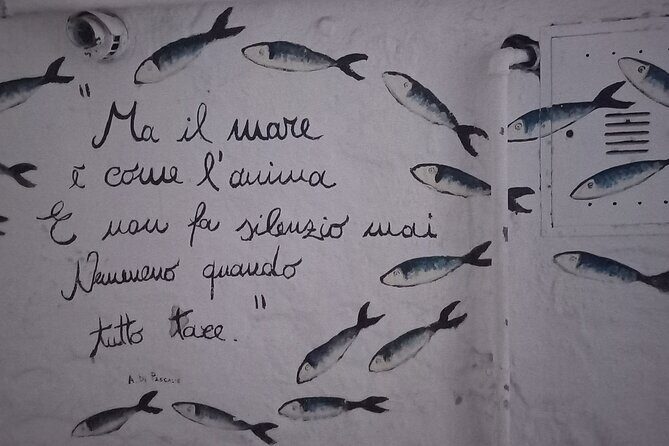 "Ma il mare
è come l'anima
E non fa silenzio mai
Nemmeno quando
tutto tace."
A. Di Pascale